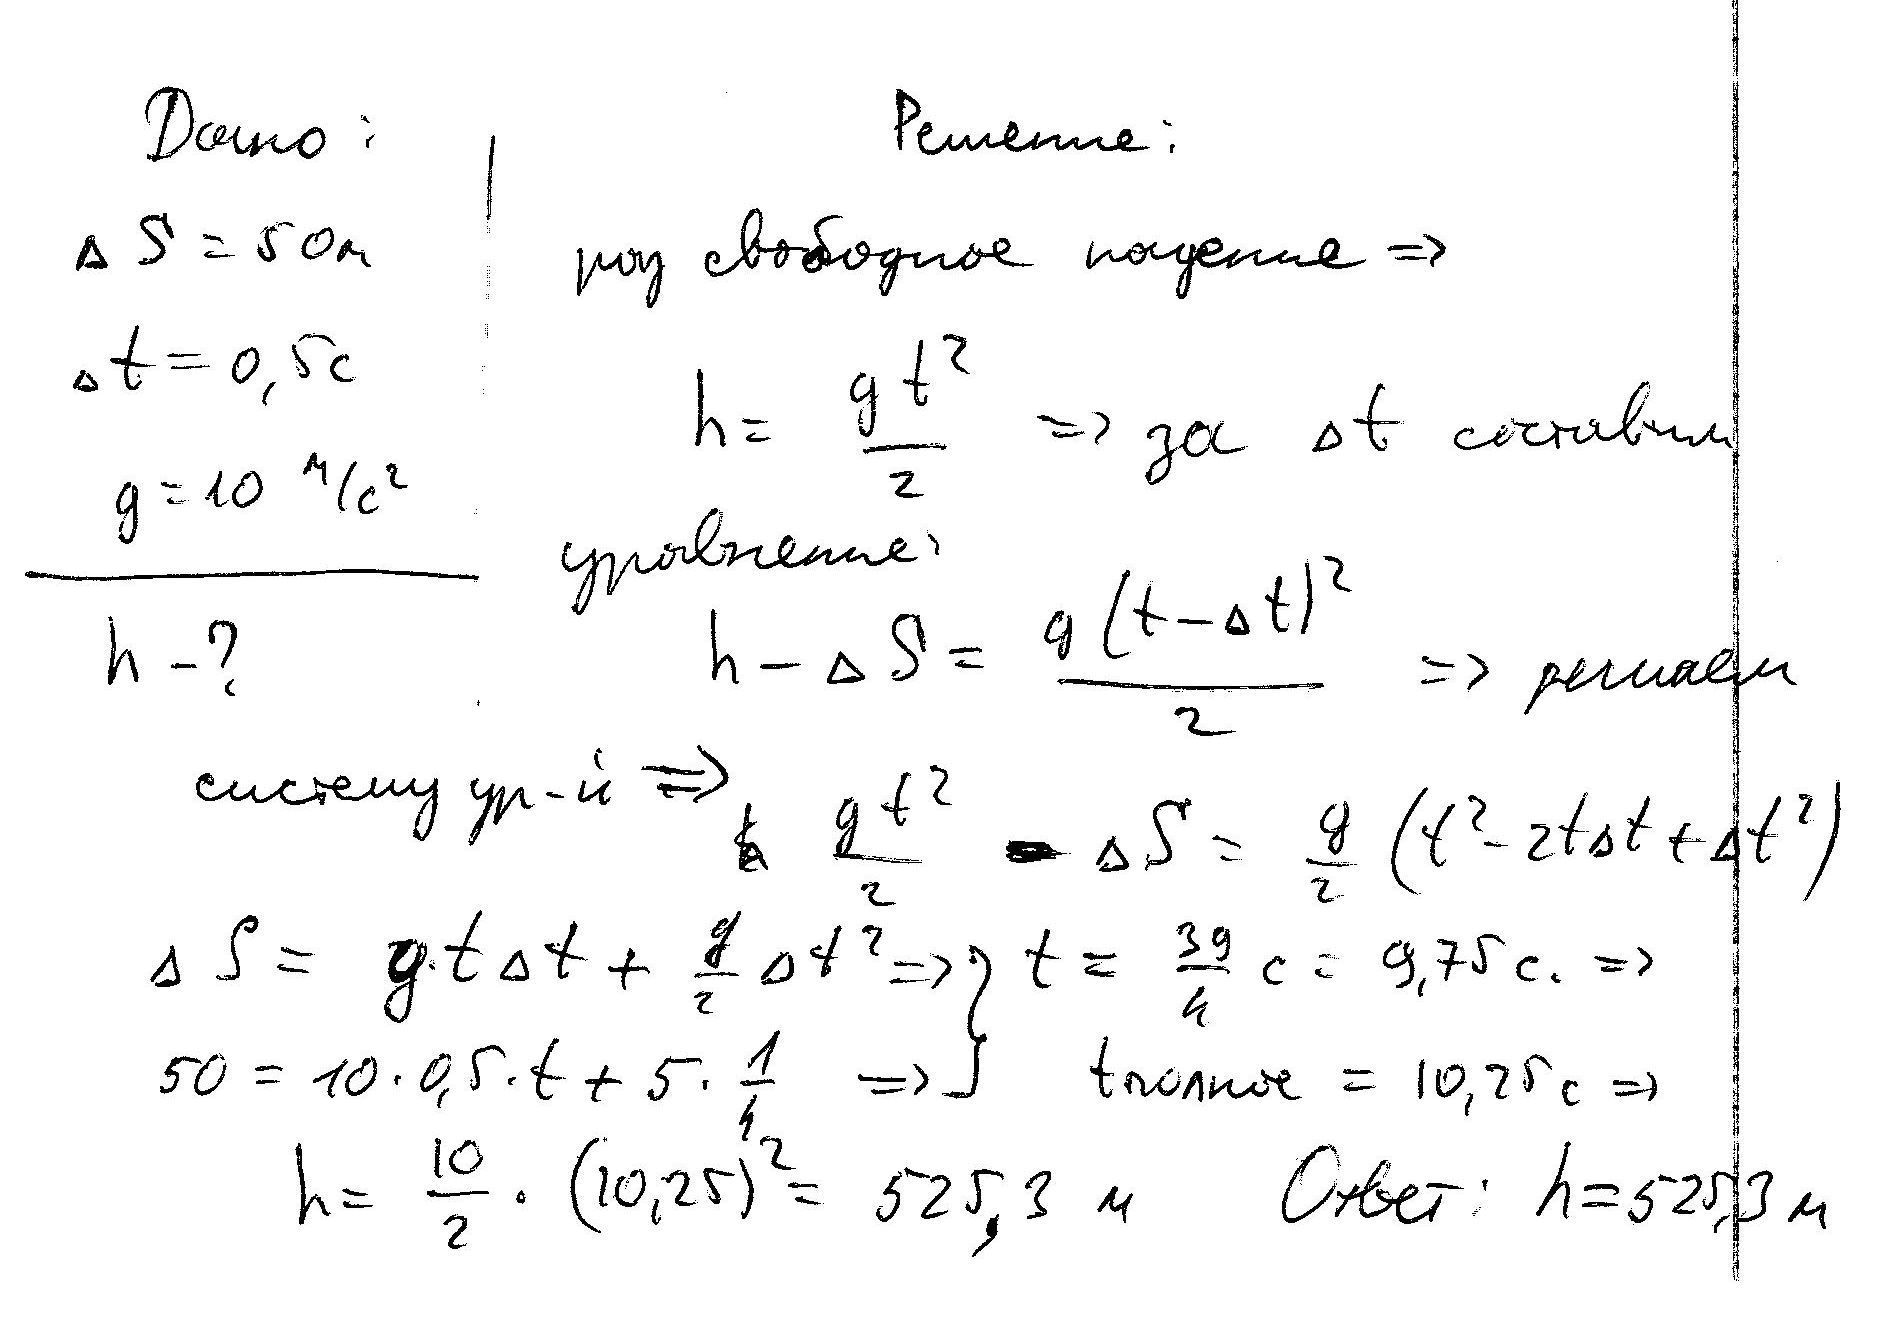 Дано:
Δ S = 50м
Δt = 0,5с
g = 10 м/с²
h - ?
Решение:
раз свободное падение =>
h = gt²/2 => за Δt составим
уравнение:
h - ΔS = g(t - Δt)²/2 => решаем
систему ур-й =>
gt²/2 - ΔS = g/2 (t² - 2tΔt + Δt²)
ΔS = g·tΔt + g/2 Δt² => } t = 39/4 с = 9,75 с. =>
50 = 10·0,5·t + 5·1/4 => } tполное = 10,25 с =>
h = 10/2 · (10,25)² = 525,3 м Ответ: h = 525,3 м